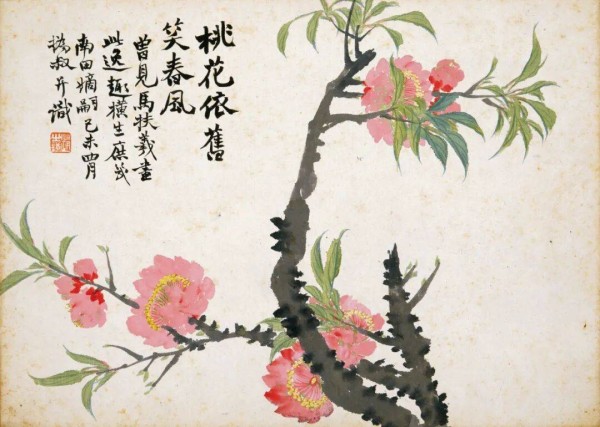 桃花依舊
笑春風
曾見馬扶羲畫
此逸趣横生庶幾
南田嫡嗣己未四月
撝叔并識